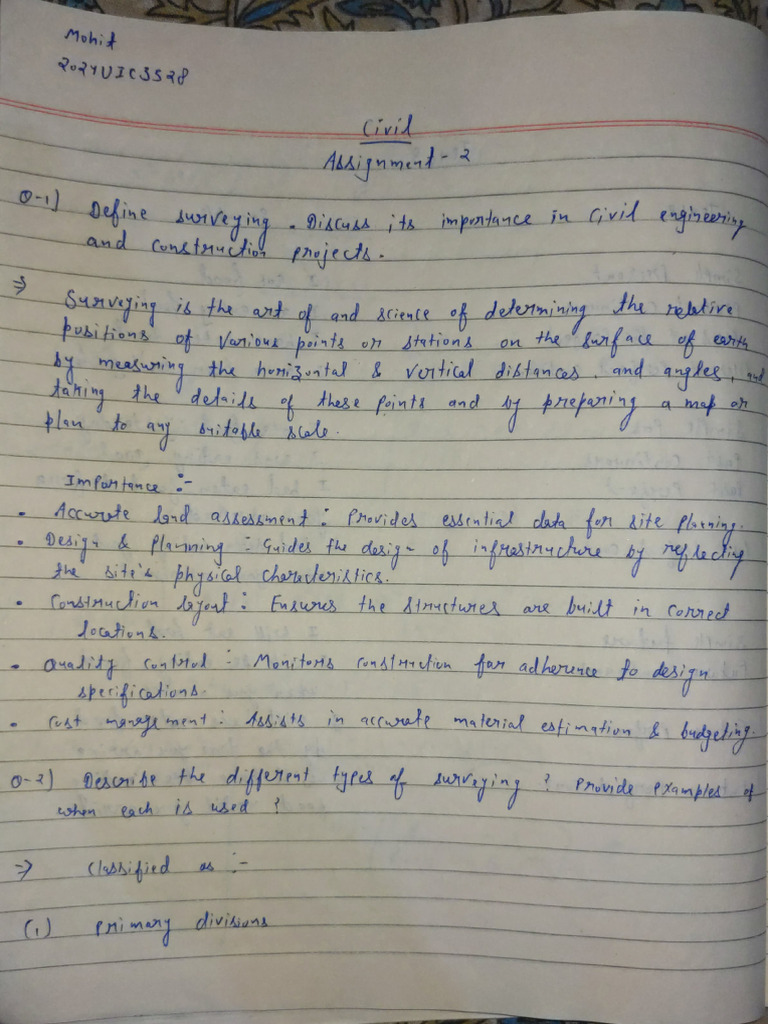 Mohit
2024UIC3528
Civil
Assignment - 2
Q-1) Define surveying. Discuss its importance in civil engineering
and construction projects.
⇒ Surveying is the art of and science of determining the relative
positions of various points or stations on the surface of earth
by measuring the horizontal & vertical distances, and angles, and
taking the details of these points and by preparing a map or
plan to any suitable scale.
Importance :-
• Accurate land assessment : Provides essential data for site planning.
• Design & Planning : Guides the design of infrastructure by reflecting
the site's physical characteristics.
• Construction layout : Ensures the structures are built in correct
locations.
• Quality control : Monitors construction for adherence to design
specifications.
• Cost management : Assists in accurate material estimation & budgeting.
Q-2) Describe the different types of surveying ? Provide examples of
when each is used ?
⇒ Classified as :-
(1) Primary divisions